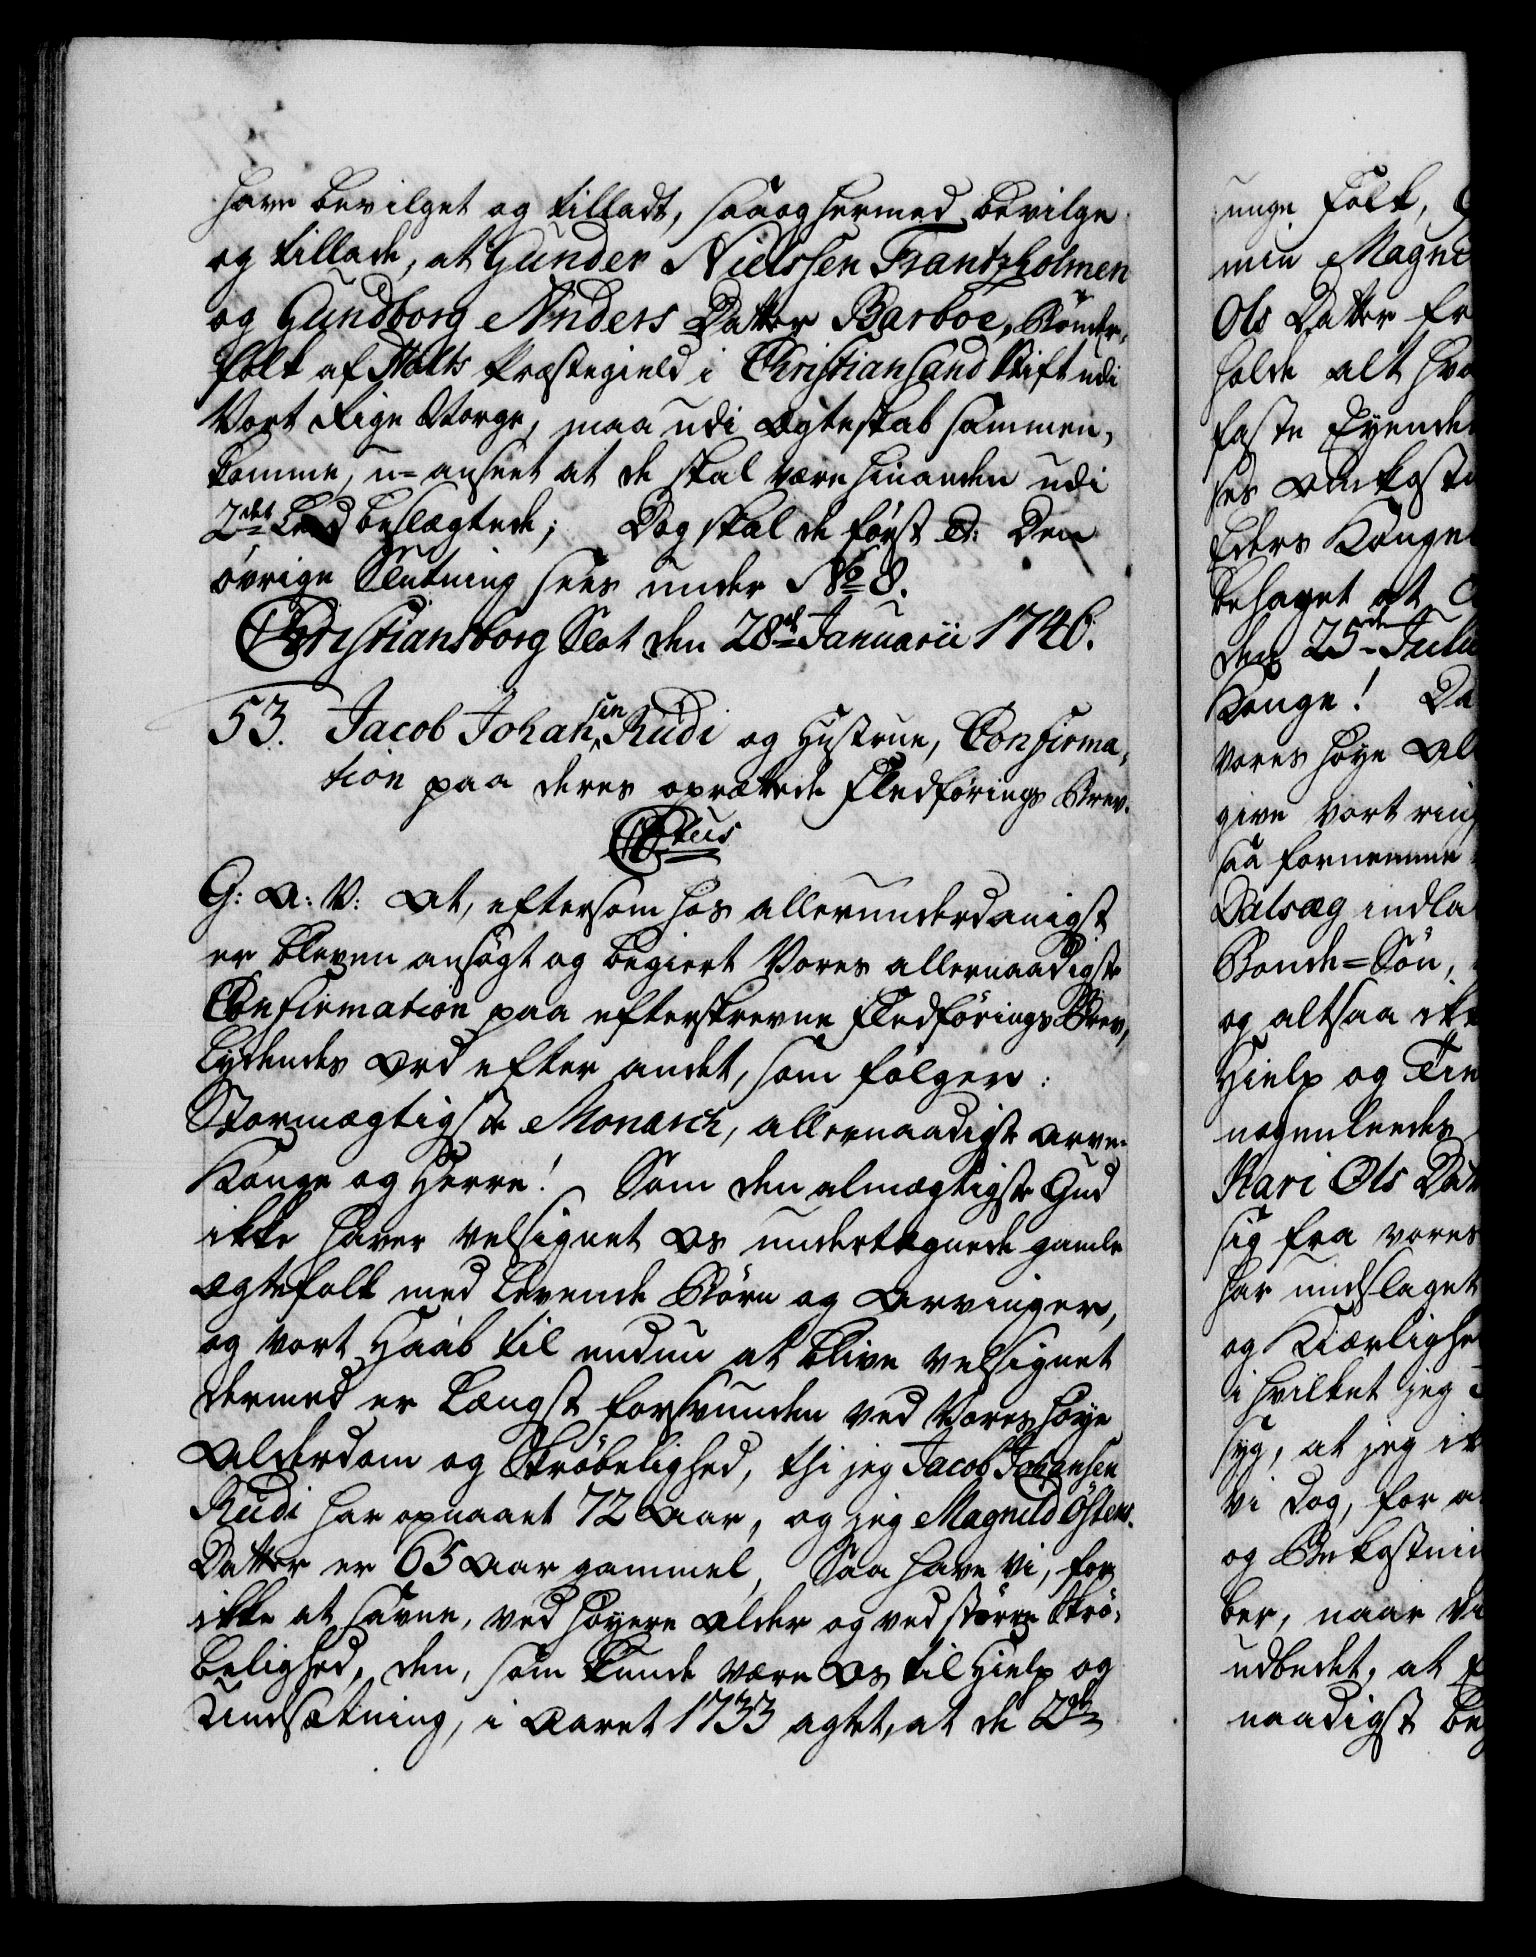 have bevilget og tilladt, saa og hermed bevilge
og tillade, at Gunder Nielssen Frantzholmen
og Gundborg Anders Datter Barboe, Bönder,
folk af Holts Præstegield i Christiansand Stift udi
Vort Rige Norge, maa udi Ægteskab sammen,
komme, u-anseet at de skal være hinanden udi
2det Leed beslægtede; Dog skal de först &: Den
övrige Slutning sees under No 8.
Christiansborg Slot den 28de Januarii 1746.
53. Jacob Johansen Rudi og Hustrue, Confirma,
tion paa deres oprættede Fledförings Brev.
C6tus
G: A: V: At, eftersom hos allerunderdanigst
er bleven ansögt og begiert Vores allernaadigste
Confirmation paa efterskrevne Fledförings Brev,
lydendes Ord efter andet, som fölger:
Stormægtigste Monarch, allernaadigste Arve-
Konge og Herre! Som den almægtigste Gud
ikke haver velsignet Os undertegnede gamle
Ægtefolk med levende Börn og Arvinger,
og vort Haab til endnu at blive velsignet
dermed er længst forsvunden ved Vores höye
Alderdom og Skröbelighed, thi jeg Jacob Johansen
Rudi har opnaaet 72 Aar, og jeg Magnild Östens
Datter er 65 Aar gammel, Saa have vi, for
ikke at savne, ved höyere Alder og ved större Skrö,
belighed, den, som kunde være Os til Hielp og
Undsætning, i Aaret 1733 agtet, at de 2de
unge Folk,
min Magni
Ols Datter fr
holde alt hva
faste Eyende
ses Omkostn
Eders Konge
behaget at
den 25de Julii
Konge! Da
vores höye Al
give vort ring
saa fornemme
Dalsæg indla
Bonde-Sön,
og altsaa ikke
Hielp og Tien
nogenleedes
Kari Ols Dat
sig fra vores
har undslaget
og Kierlighe
i hvilket jeg
syg, at jeg ik
vi dog, for a
og Bekostnin
ber, naar Vi
udbedet, at E
naadigst be